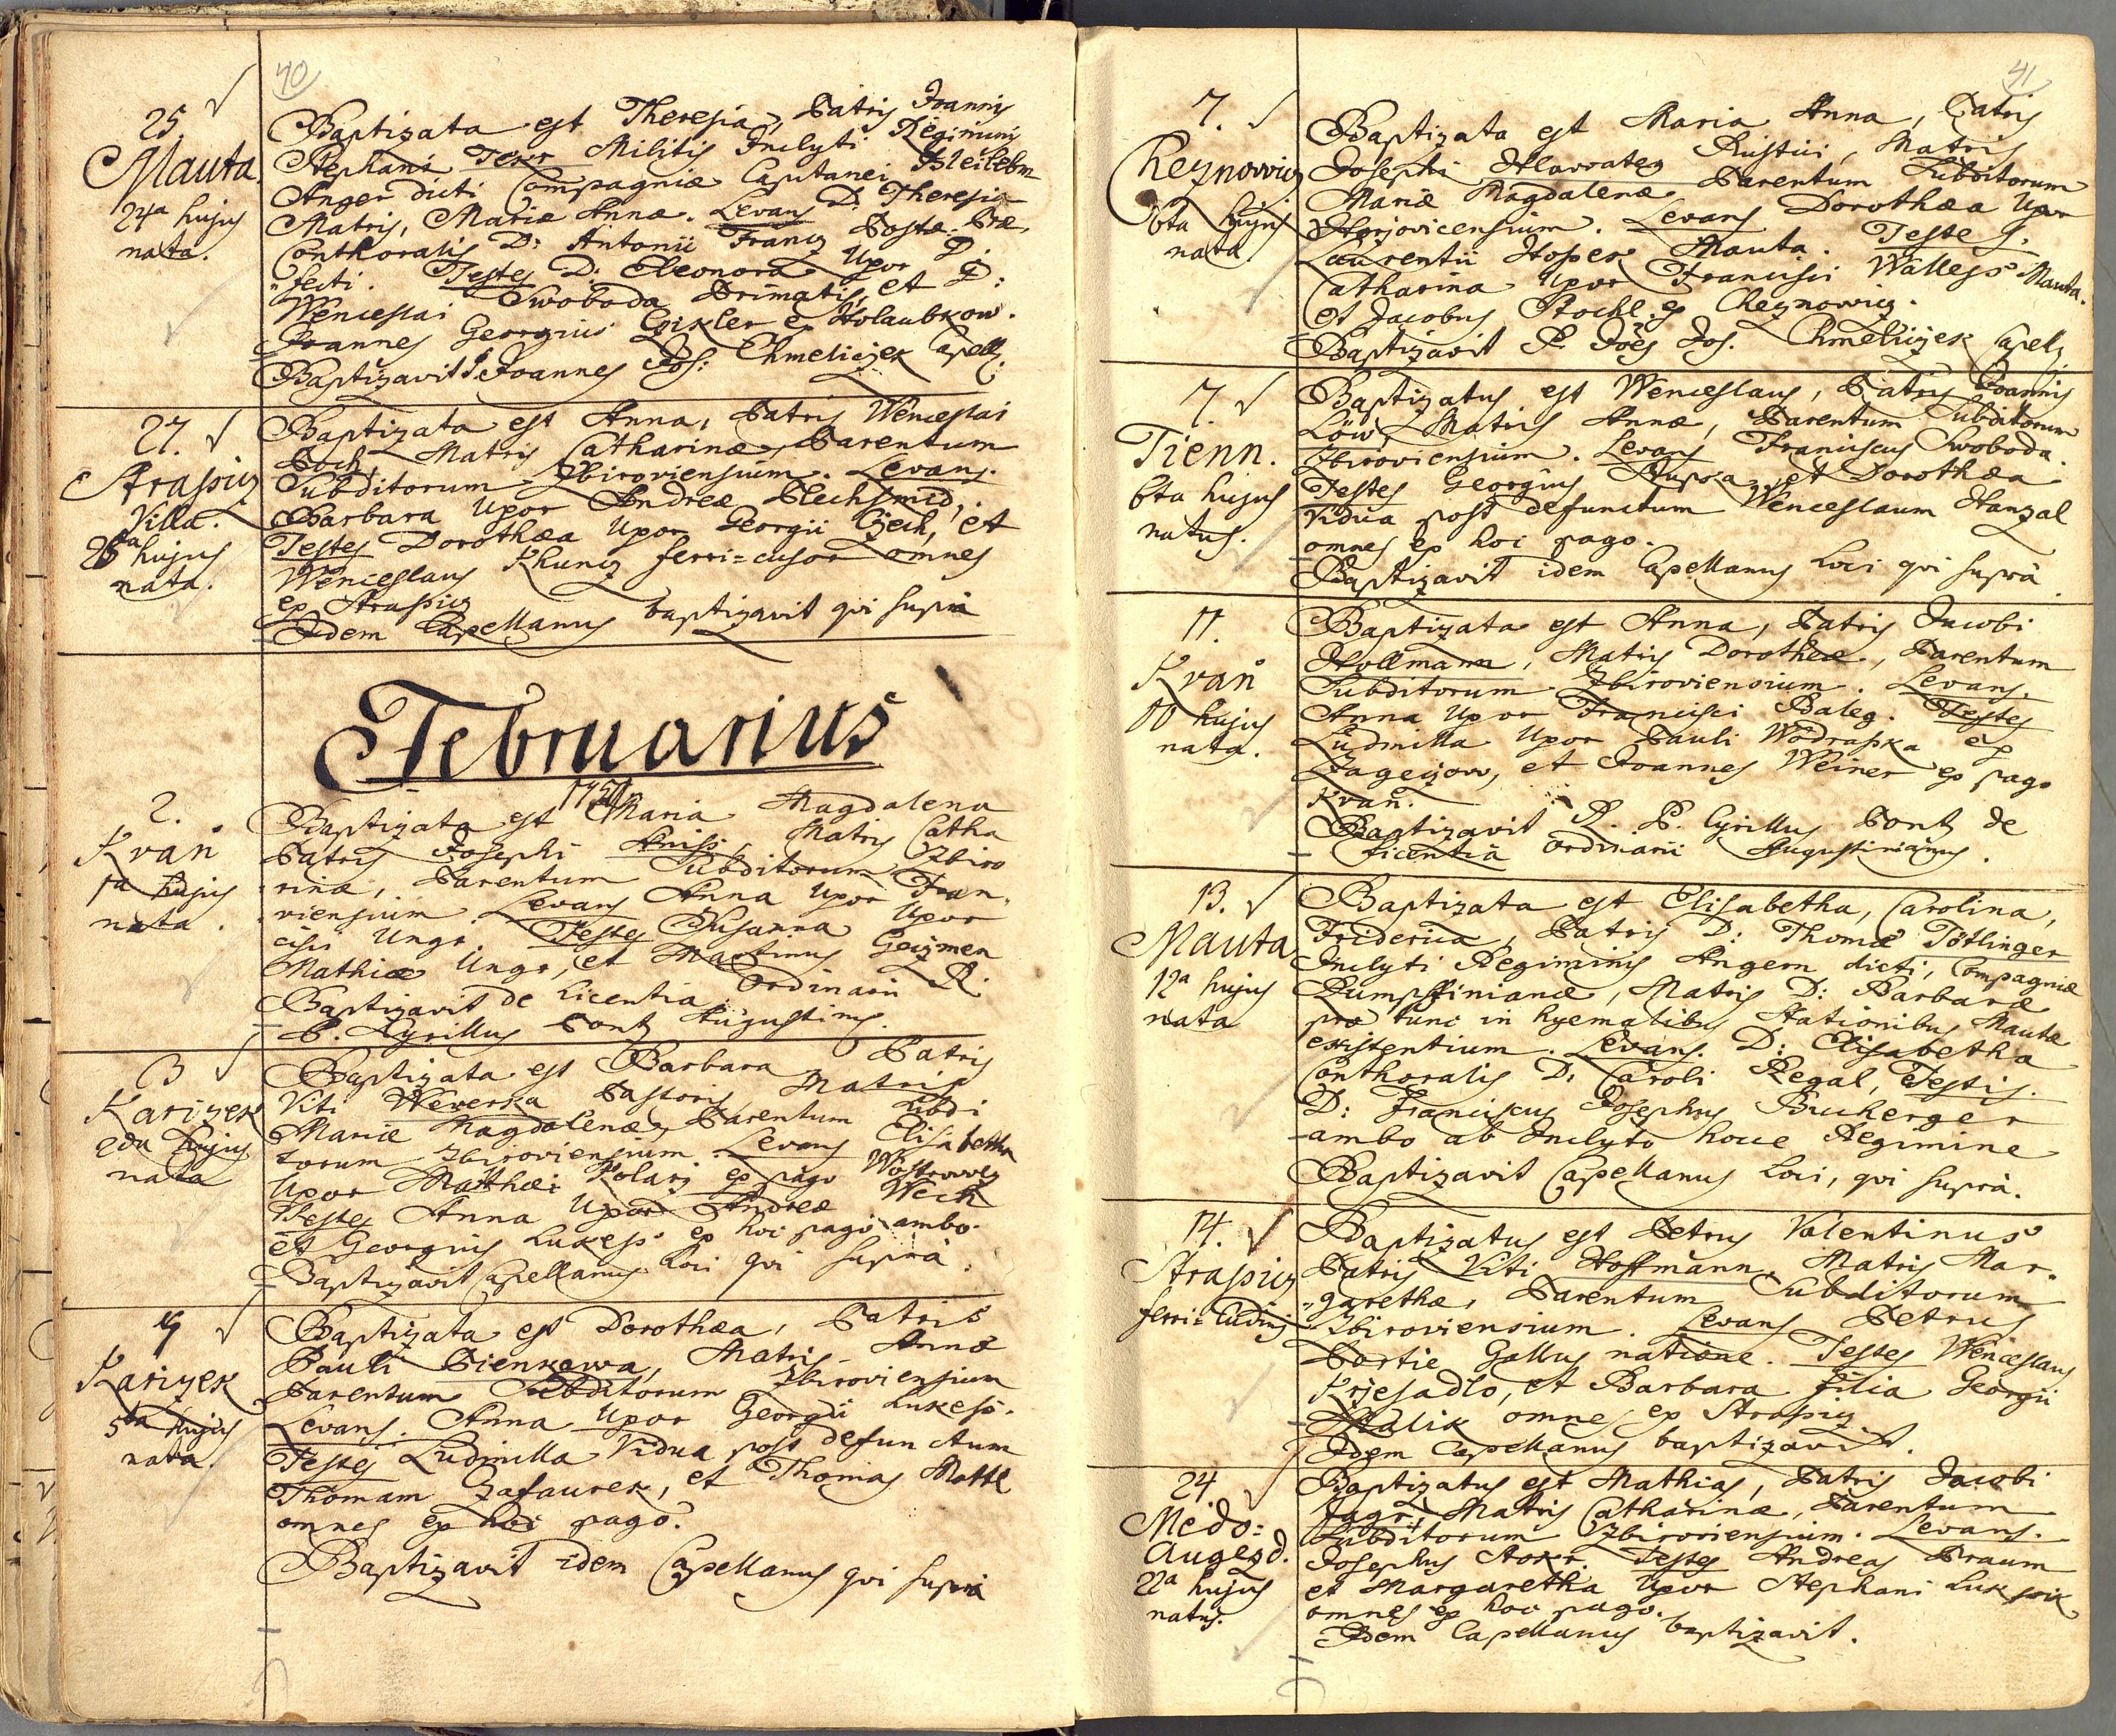 40
25.
Mauta.
24a hujus
nata.
Baptizata est Theresia, Patris Joannis
Stephani Militis Inclyti Regiminis
Anger dicti Compagniæ Capitanei
Matris, Mariæ Annæ. Levans D: Theresia
Conthoralis D: Antonii Francz Postæ Præ
fecti. Testes D: Eleonora Uxor D:
Wenceslai Swoboda Primatis, et D:
Joannes Georgius Czikler ex Holaubkow.
Baptizavit P. Joannes Jos: Chmeliczek Capell.
27.
Straßicz
Villa.
26a hujus
nata.
Baptizata est Anna, Patris Wenceslai
Poch, Matris Catharinæ, Parentum
Subditorum Zbiroviensium. Levans.
Barbara Uxor Andreæ Plechsmid,
Testes Dorothæa Uxor Georgii Czech, et
Wenceslaus Khuncz ferri=cusor omnes
ex Straßicz
Idem Capellanus baptizavit qvi supra
Februarius
2.
Kvaň
1a hujus
nata.
Baptizata est Maria Magdalena
Patris Josephi Matris Catha
rinæ, Parentum Subditorum Zbiro
viensium. Levans Anna Uxor Fran.
cisci Ungr. Testes Susanna Uxor
Mathiæ Ungr, et Martinus Geizmen
Baptizavit de Licentia Ordinarii R.
P. Cyrillus Pontz Augustinus.
3
Karizek
2da hujus
nata
Baptizata est Barbara Patris
Viti Wewerka Pastoris Matris
Mariæ Magdalenæ, Parentum Subdi
torum Zbiroviensium. Levans Elisabetha
Uxor Matthæi Kolarz ex pago Wostrowecz
Testes Anna Uxor Andreæ
et Georgius Lukeß ex hoc pago ambo.
Baptizavit Capellanus loci qvi supra.
Karizek
5ta hujus
nata.
Baptizata est Dorothæa, Patris
Pauli Pienkawa, Matris Annæ
Parentum Subditorum Zbiroviensium
Levans. Anna Uxor Georgii Lukeß.
Testes Ludmilla Vidua post defunctum
Thomam Zafaurek, et Thomas Mattl
omnes ex hoc pago.
Baptizavit idem Capellanus qvi supra
41
7.
Cheznovicz
6ta hujus
nata.
Baptizata est Maria Anna, Patris
Josephi Hlawatey Rustici, Matris
Mariæ Magdalenæ Parentum Subditorum
Horzovicensium. Levans Dorothæa Uxor
Laurentii Hoßek Mauta. Teste J.
Catharina Uxor Francisci Walleß Mauta.
et Jacobus Stochl. ex Cheznowicz.
Baptizavit P. Jōes Jos. Chmeliczek Capell.
7.
Tienn.
6ta hujus
natus.
Baptizatus est Wenceslaus, Patris Joannis
Löw, Matris Annæ, Parentum Subditorum
Zbiroviensium. Levans Franciscus Swoboda.
Testes Georgius Stupka, et Dorothæa
Vidua post defunctum Wenceslaum Hanzal
omnes ex hoc pago.
Baptizavit idem Capellanus loci qvi supra
11.
Kvaň
10 hujus
nata.
Baptizata est Anna, Patris Jacobi
Hollmann, Matris Dorotheæ, Parentum
Subditorum Zbiroviensium. Levans.
Anna Uxor Francisci Baleg. Testes
Ludmilla Uxor Pauli Wodraßka ex
Zageczow, et Joannes Weiner ex pago
Kvaň.
Baptizavit R. P. Cyrillus Pontz de
licentia ordinarii Augustinianus.
13.
Mauta
12a hujus
nata
Baptizata est Elisabetha, Carolina,
Friderica, Patris D: Thomæ Tötlinger
Inclyti Regiminis Angern dicti, Compagniæ
Rumpffinianæ, Matris D: Barbaræ
pro tunc in hyematibus Stationibus Mautæ
existentium. Levans. D: Elisabetha
Conthoralis D: Caroli Regal, Testis.
D: Franciscus Josephus Bucherger
ambo ab Inclyto hoce Regimine
Baptizavit Capellanus loci, qvi supra.
14.
Straßicz
ferri=
Baptizatus est Petrus Valentinus
Patris Viti Hoffmann, Matris Mar.
garethæ, Parentum Subditorum
Zbiroviensium. Levans Petrus
Portie Gallus natione. Testes Wenceslaus
Krzesadlo, et Barbara filia Georgii
Malik omnes ex Straßicz.
Idem Capellanus baptizavit.
24
Medo=
Augezd.
22a hujus
natus.
Baptizatus est Mathias, Patris Jacobi
Jagr, Matris Catharinæ, Parentum
Subditorum Zbiroviensium. Levans.
Josephus Testes Andreas Praum
et Margaretha Uxor Stephani
omnes ex hoc pago.
Idem Capellanus baptizavit.